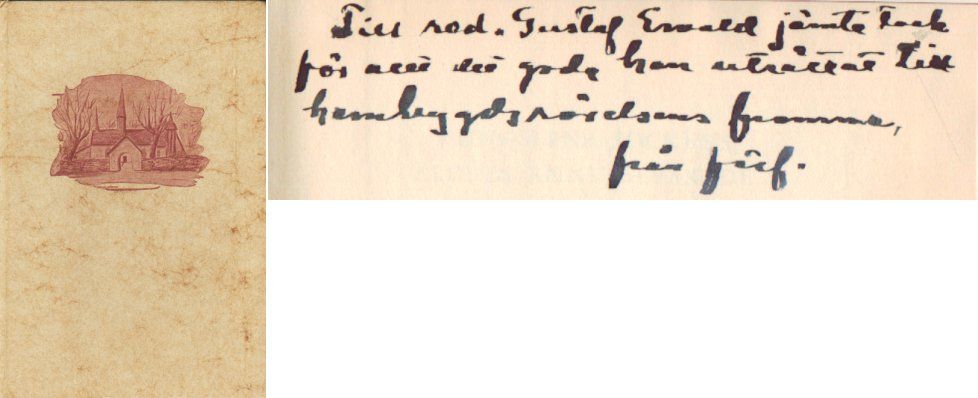 Till red. Gustaf Ewald jämte tack
för allt det goda han uträttat till
hembygdsrörelsens fromma,
från förf.